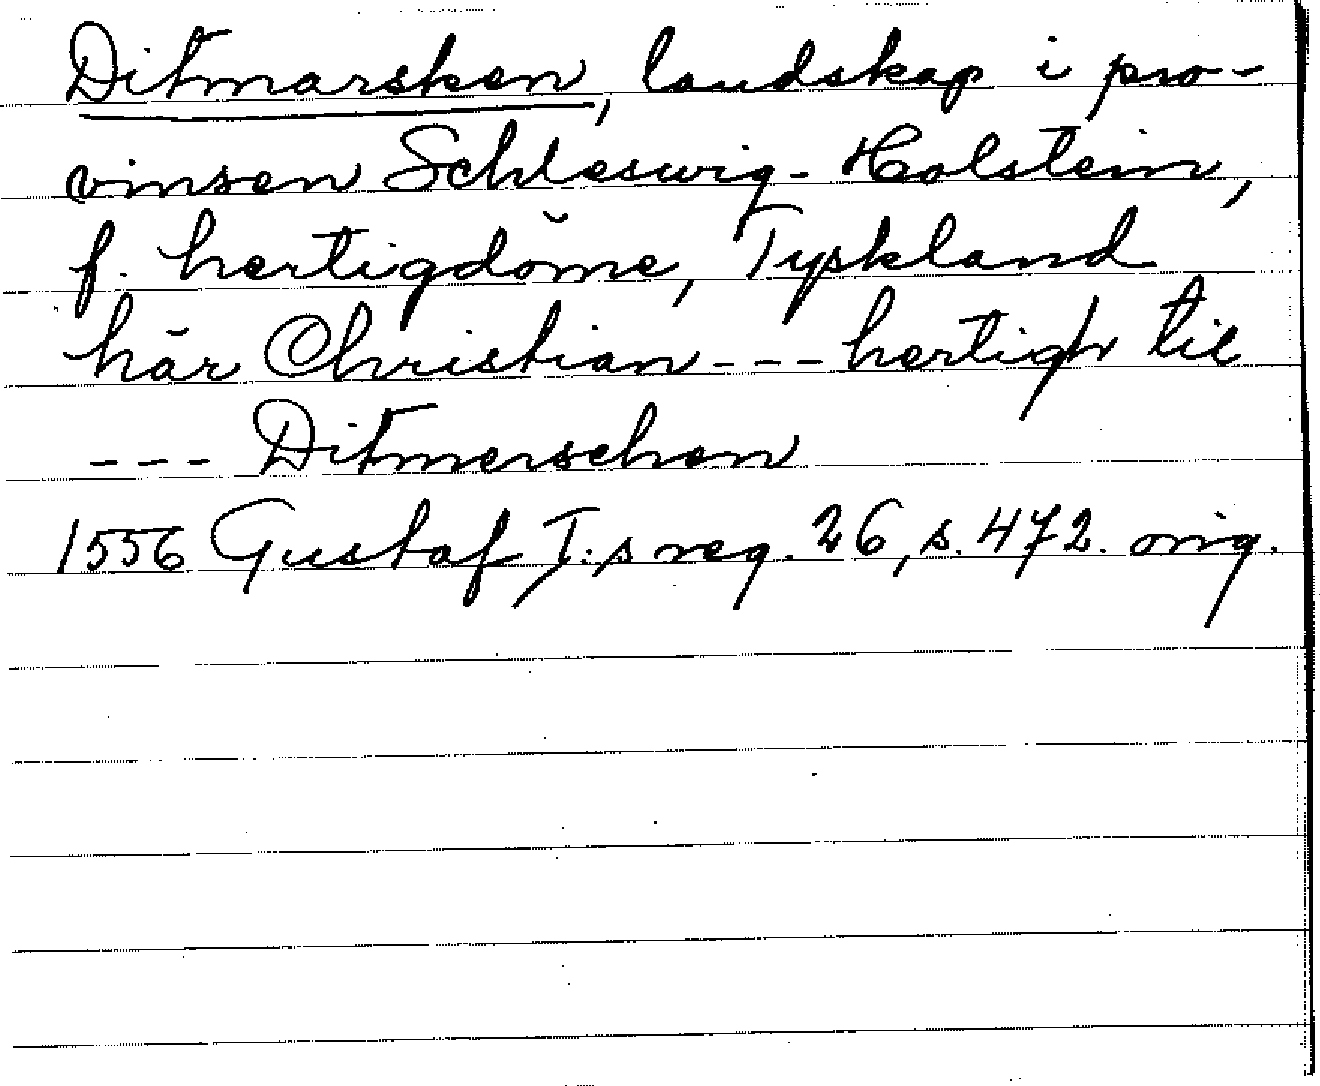 Ditmarsken, landskap i pro-
vinsen Schleswig-Holstein,
f. hertigdöme, Tyskland
här Christian --- hertigh til
--- Ditmerschen
1556 Gustaf I:s reg. 26, s. 472. orig.